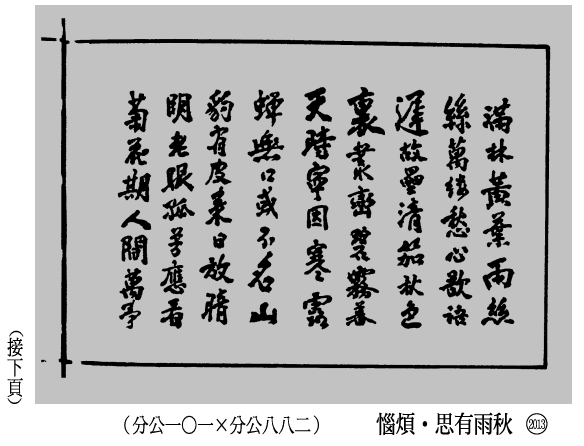 滿林黃葉雨絲
絲萬縷愁心歇語
遲故壘清笳秋色
裏叢巒碧霧暮
天時寧因寒露
蟬無口或不名山
豹有皮來日放晴
明老眼孤芳應看
菊花期人間萬事
2013 秋雨有思・煩惱
(二八八公分×一〇一公分)
(接下頁)